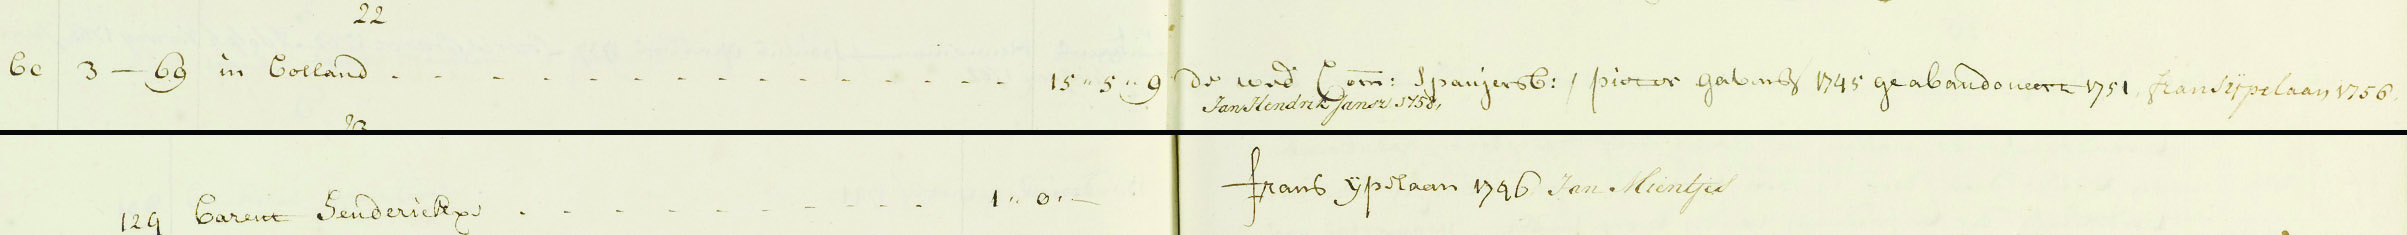 22
be 3 — 69 in Colland - - - - - - - - - - - - - - 15 " 5 " 9 de wed Corn: Spanjersb: / pieter 1745 geabandoneert 1751, frans ijpelaan 1756,
Jan Hendrik Jansz 1758,
23
129 Barent Henderickxs - - - - - - - - - 1 " 0 " — frans ypelaan 1746 Jan Mientjes